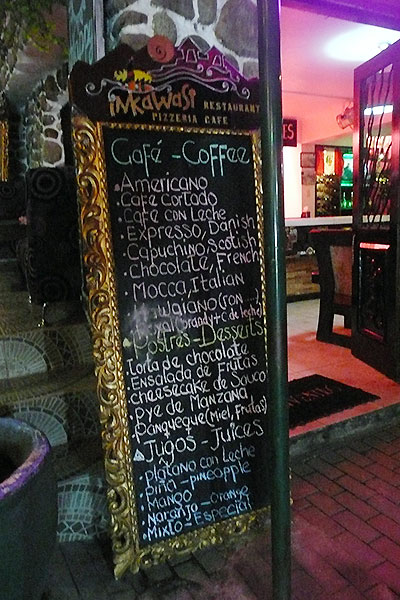 inkawasi RESTAURANT
PIZZERIA CAFE
Café - Coffee
.Americano
.Café Cortado
.Café con Leche
.Expresso, Danish
.Capuchino, Scotish
.Chocolate, French
Mocca, Italian
(ron
(brandy+C de leche)
Postres - Desserts
.Torta de chocolate
.Ensalada de Frutas
.cheesecake de Sauco
.Pye de Manzana
.Panqueque (Miel, Frutas)
Jugos - Juices
.Platano con Leche
.Piña - pineapple
.Mango
.Naranja - orange
.Mixto - Especial